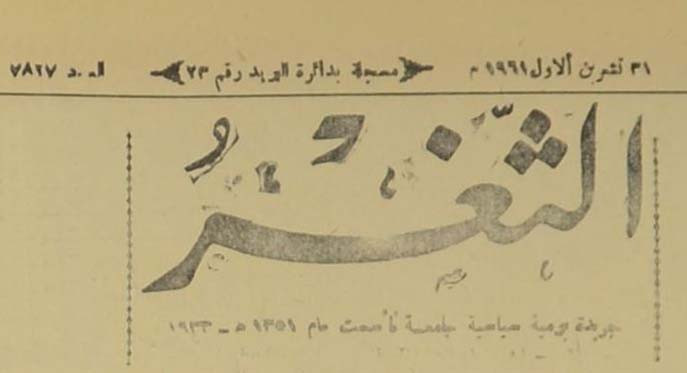 ٣١ تشرين الاول ١٩٦١ م (مسجلة بدائرة البريد رقم ٢٣) العدد ٧٨٢٧
الثَّغْرُ
جريدة يومية سياسية جامعة تأسست عام ١٣٥١ هـ - ١٩٣٣